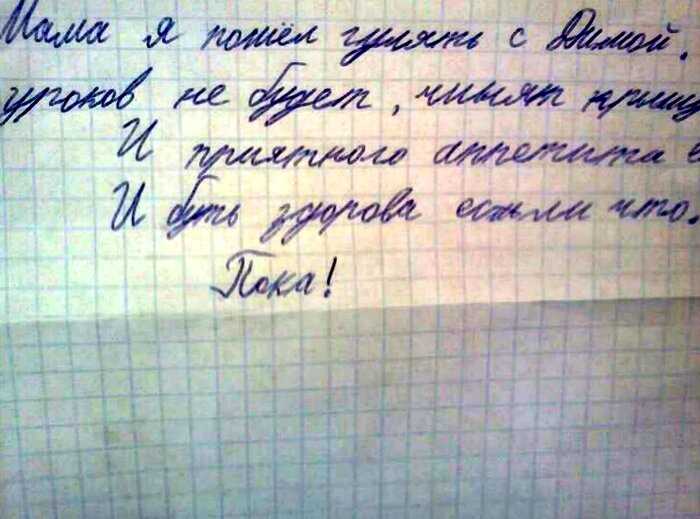 Мама я пошёл гулять с Димой.
уроков не будет, чинят крышу
И приятного аппетита
И буть здорова если что.
Пока!